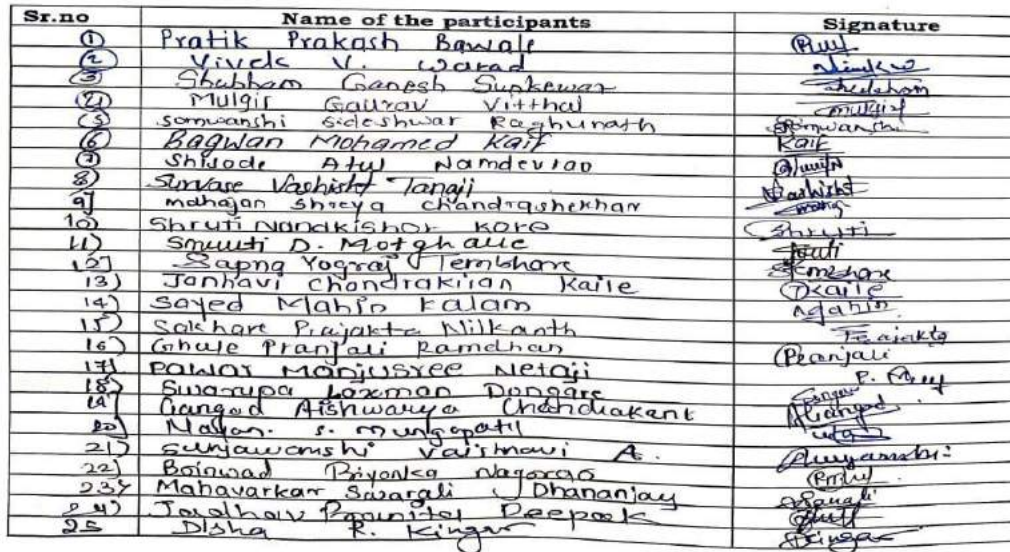 Sr.no Name of the participants Signature
1 Pratik Prakash Bawale
2 Vivek V. Warad
3 Shubham Ganesh Sunkewar Shubham
4 Mulgir Gaurav Vitthal Mulgir
5 Somwanshi Sideshwar Raghunath Somwanshi
6 Bagwan Mohamed Kaif Kaif
7 Shisode Atul Namdevrao
8) Survase Vashisht Tanaji Vashisht
9) Mahajan Shreya Chandrashekhar
10) Shruti Nandkishor Kore Shruti
11) Smruti D. Motghare
12) Sapna Yograj Tembhare Tembhare
13) Janhavi Chandrakiran Kaile JKaile
14) Sayed Mahin Kalam Mahin
15) Sakhare Prajakta Nilkanth Prajakta
16) Ghule Pranjali Ramdhan Pranjali
17) Pawar Manjusree Netaji
18) Swarupa Laxman Dongare
19) Gangad Aishwarya Chandrakant AGangad
20) S. Mungapatil
21) Suryawanshi Vaishnavi A.
22) Boinwad Priyanka Nagorao
23) Mahavarkar Swarali Dhananjay Swarali
24) Deepak
25 Disha R. Kingar